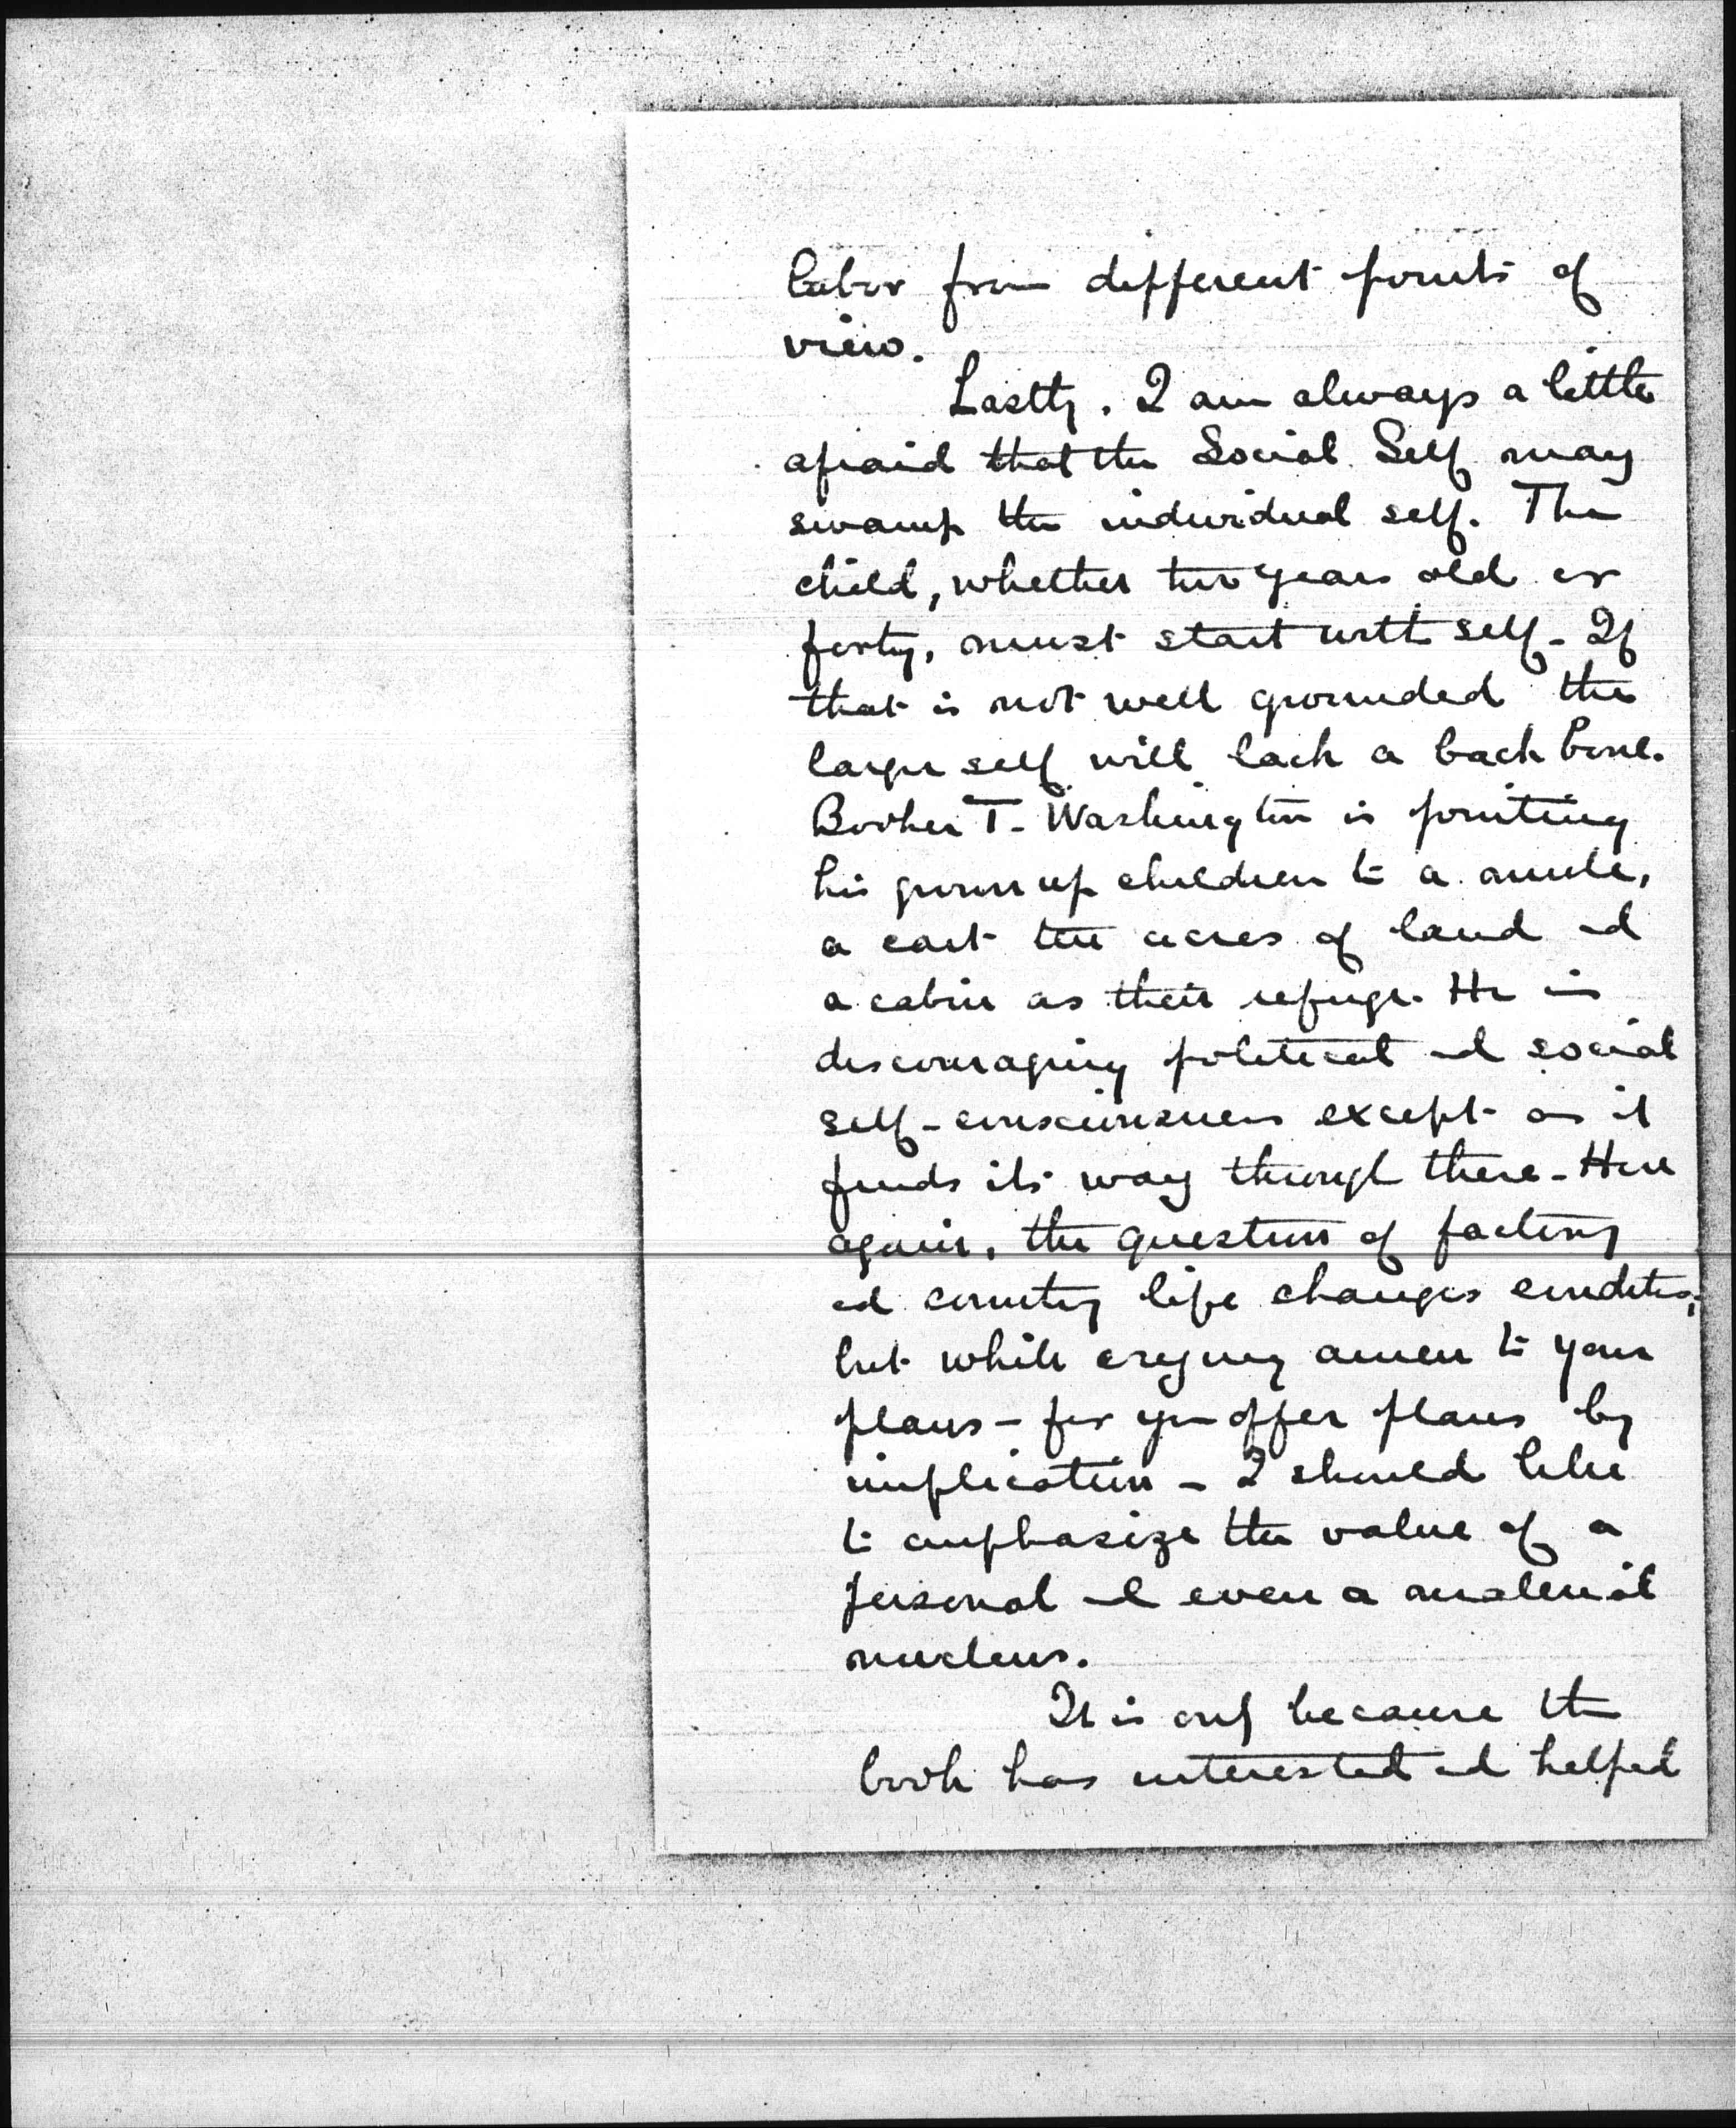 labor from different points of
view.
Lastly. I am always a little
afraid that the Social Self may
swamp the individual self. The
child, whether two years old or
forty, must start with self. If
that is not well grounded the
larger self will lack a back bone.
Booker T. Washington is pointing
his grown up children to a mule,
a cart ten acres of land and
a cabin as their refuge. He is
discouraging political and social
self-consciousness except as it
finds its way through these. Here
again, the question of factory
and country life changes conditions;
but while crying amen to your
plans – for you offer plans by
implication – I should like
to emphasize the value of a
personal and even a material
nucleus.
It is only because the
book has interested and helped